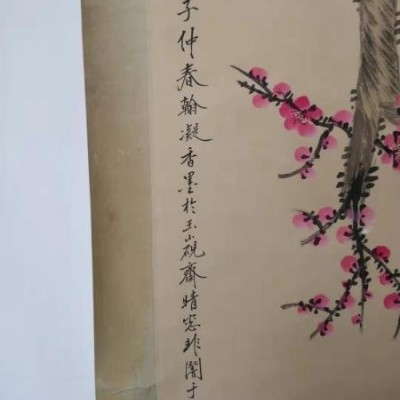 子仲春翰凝香墨於玉砚齋晴窓非闇于